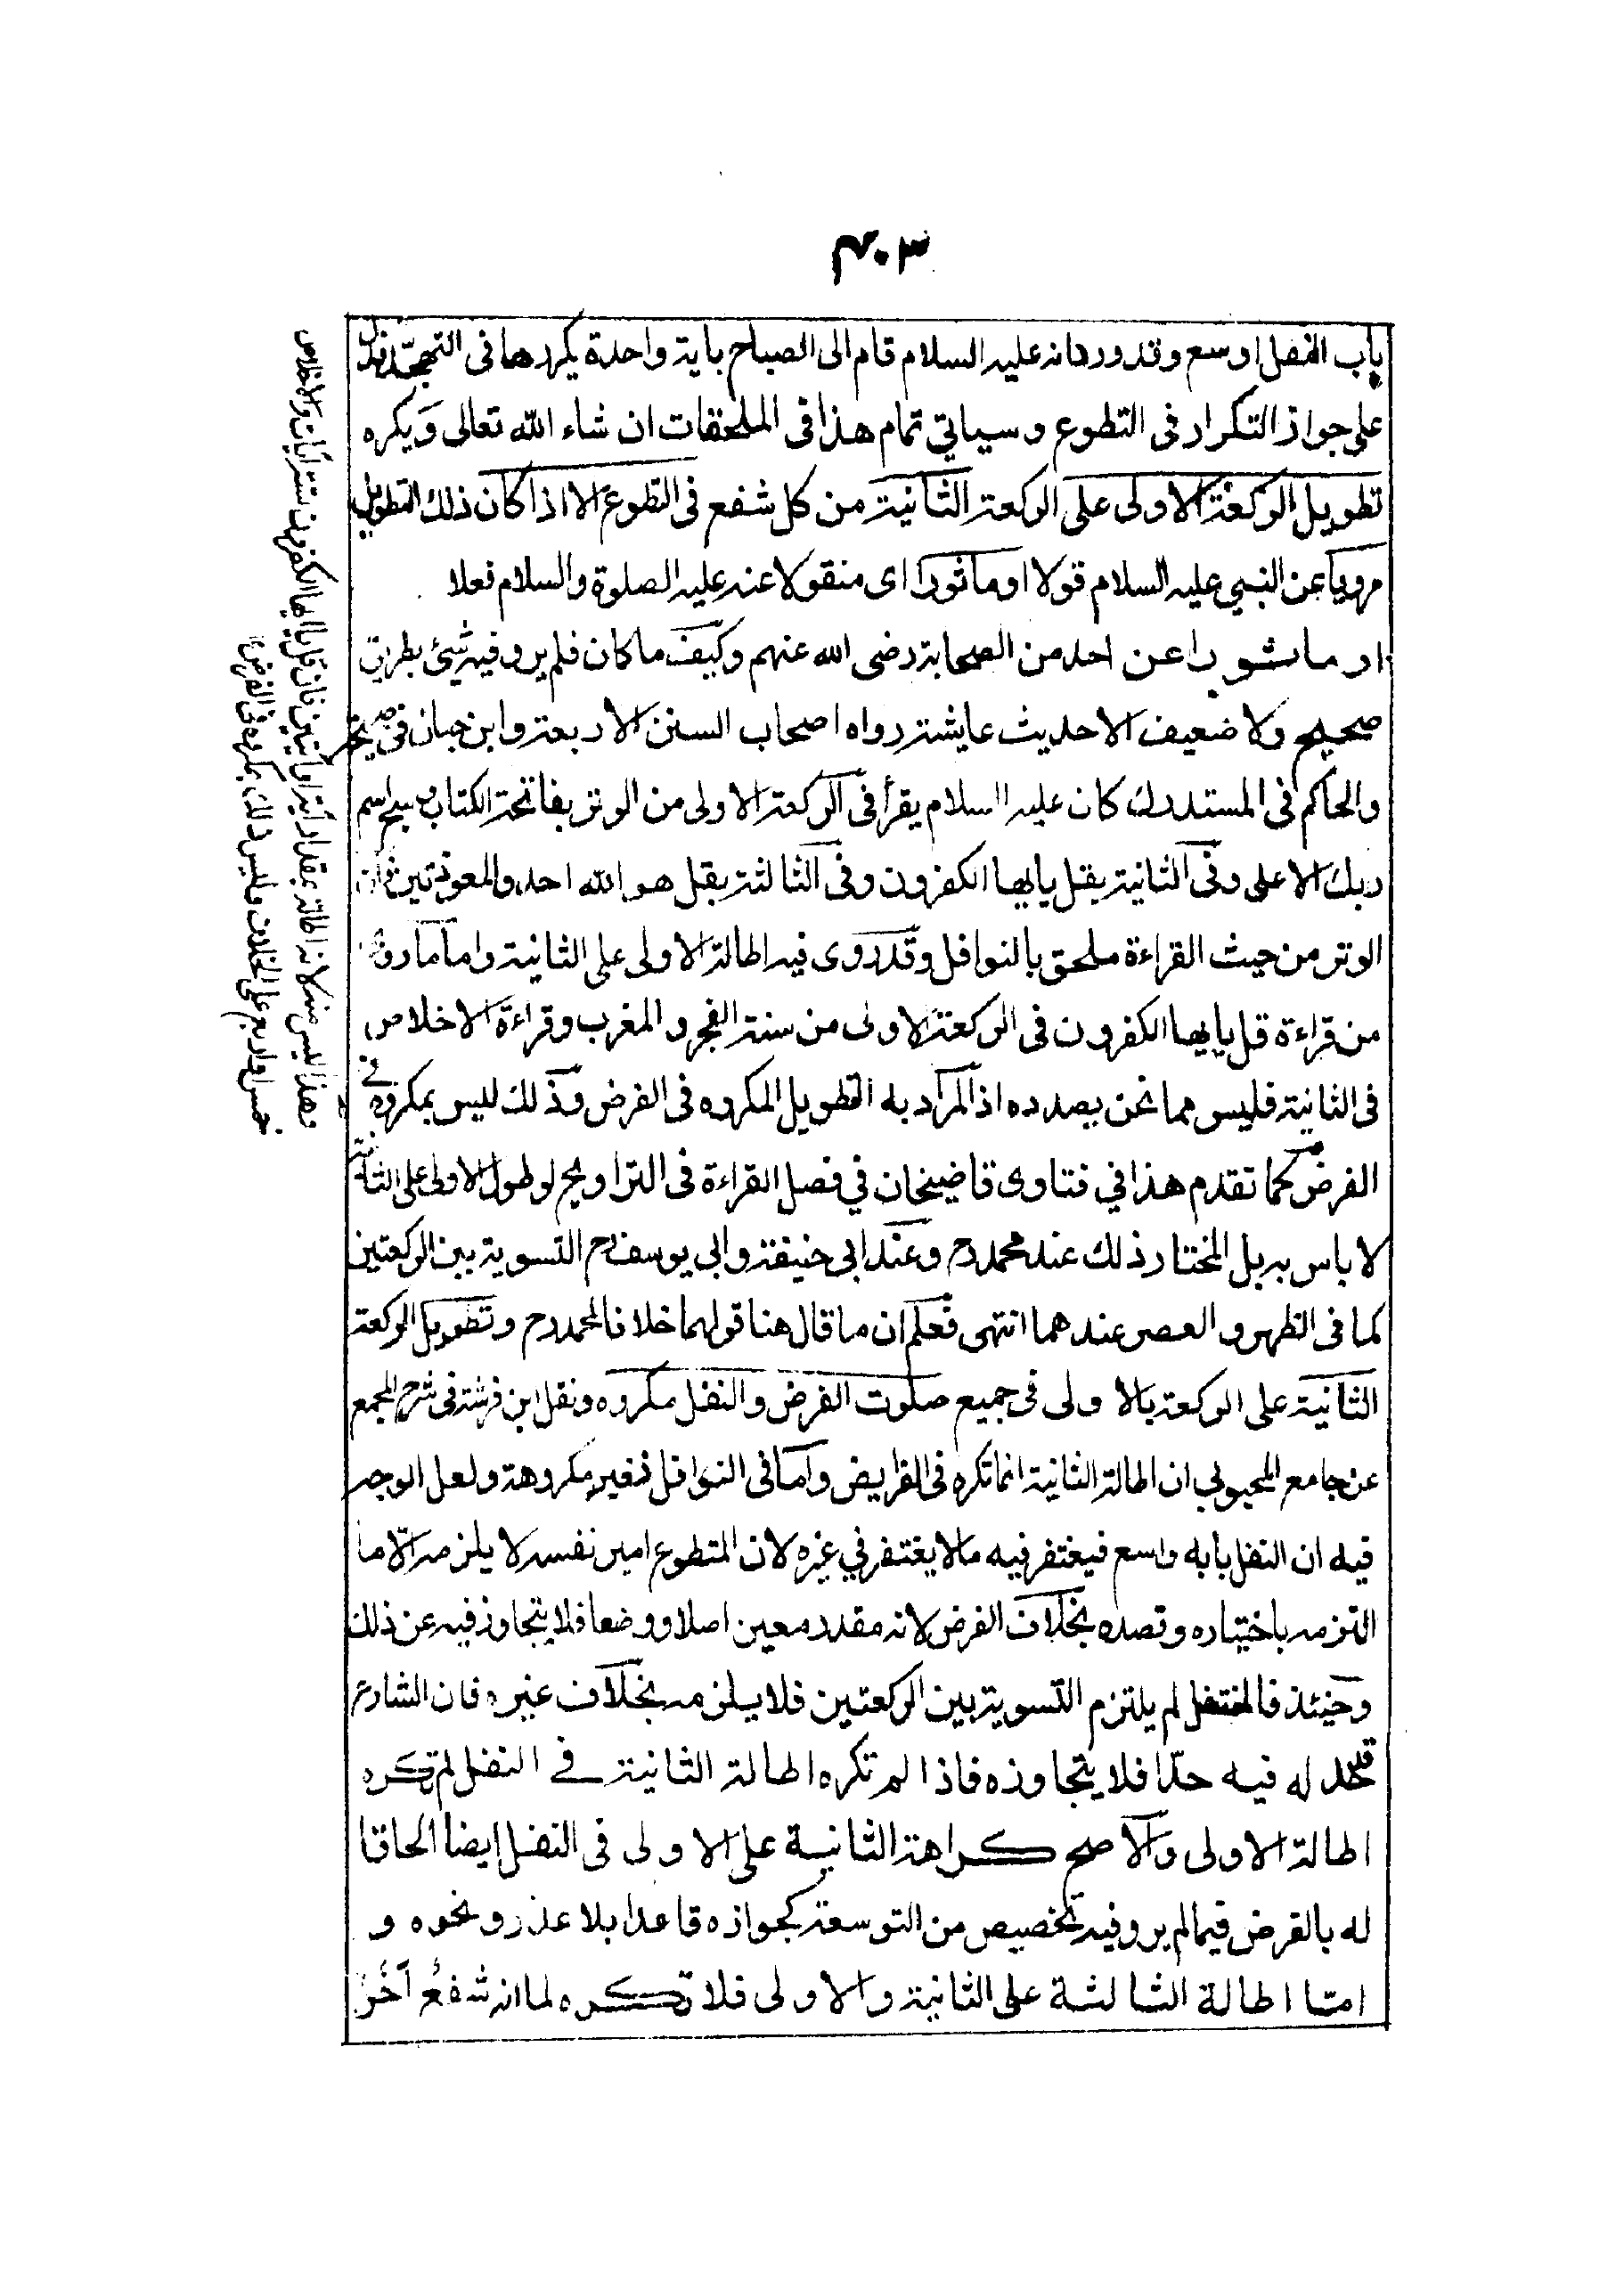 ٣٠٣
باب النفل اوسع وقد ورد انه عليه السلام قام الى الصباح باية واحدة يكررها فى التهجد فدل
على جواز التكرار فى التطوع وسياتي تمام هذا فى الملحقات ان شاء الله تعالى ويكره
تطويل الركعة الاولى على الركعة الثانية من كل شفع فى التطوع الا اذا كان ذلك التطويل
مرويا عن النبي عليه السلام قولا او ماثورا اى منقولا عنه عليه الصلوة والسلام فعلا
او ماثورا عن احد من الصحابة رضى الله عنهم وكيف ما كان فلم يرو فيه شيئ بطريق
صحيح ولا ضعيف الا حديث عايشة رواه اصحاب السنن الاربعة وابن حبان فى صحيحه
والحاكم فى المستدرك كان عليه السلام يقرأ فى الركعة الاولى من الوتر بفاتحة الكتاب وسبح اسم
ربك الاعلى وفى الثانية بقل يايها الكفرون وفى الثالثة بقل هو الله احد والمعوذتين فان
الوتر من حيث القراءة ملحق بالنوافل وقد روى فيه اطالة الاولى على الثانية واما ما روى
من قراءة قل يايها الكفرون فى الركعة الاولى من سنة الفجر والمغرب وقراءة الاخلاص
فى الثانية فليس مما نحن بصدده اذ المراد به التطويل المكروه فى الفرض وذلك ليس بمكروه فى
الفرض كما تقدم هذا في فتاوى قاضيخان في فصل القراءة فى التراويح لو طول الاولى على الثانية
لا باس به بل المختار ذلك عند محمد رح وعند ابى حنيفة وابى يوسف رح التسوية بين الركعتين
كما فى الظهر والعصر عندهما انتهى فعلم ان ما قال هنا قولهما خلافا لمحمد رح وتطويل الركعة
الثانية على الركعة الاولى فى جميع صلوت الفرض والنفل مكروه ونقل ابن فرشته فى شرح المجمع
عن جامع المحبوبي ان اطالة الثانية انما تكره فى الفرايض واما فى النوافل فغير مكروهة ولعل الوجه
فيه ان النفل بابه واسع فيغتفر فيه مالا يغتفر في غيره لان المتطوع امير نفسه لا يلزمه الا ما
التزمه باختياره وقصده بخلاف الفرض لانه مقدر معين اصلا ووضعا فلا يتجاوز فيه عن ذلك
وحينئذ فالمتنفل لم يلتزم التسوية بين الركعتين فلا يلزمه بخلاف غيره فان الشارع
قد حد له فيه حدا فلا يتجاوزه فاذا لم تكره اطالة الثانية فى النفل لم تكره
اطالة الاولى والاصح كراهة الثانية على الاولى فى النفل ايضا الحاقا
له بالفرض فيما لم يرو فيه تخصيص من التوسعة كجوازه قاعدا بلا عذر ونحوه و
اما اطالة الثالثة على الثانية والاولى فلا تكره لما انه شفع آخر
وهذا ليس منه لانه اطالة بمقدار آية او آيتين فان قل يا ايها الكفرون ست آيات والاخلاص
خمس او اربع على الخلاف وليس ذلك بمكروه فى الفرض